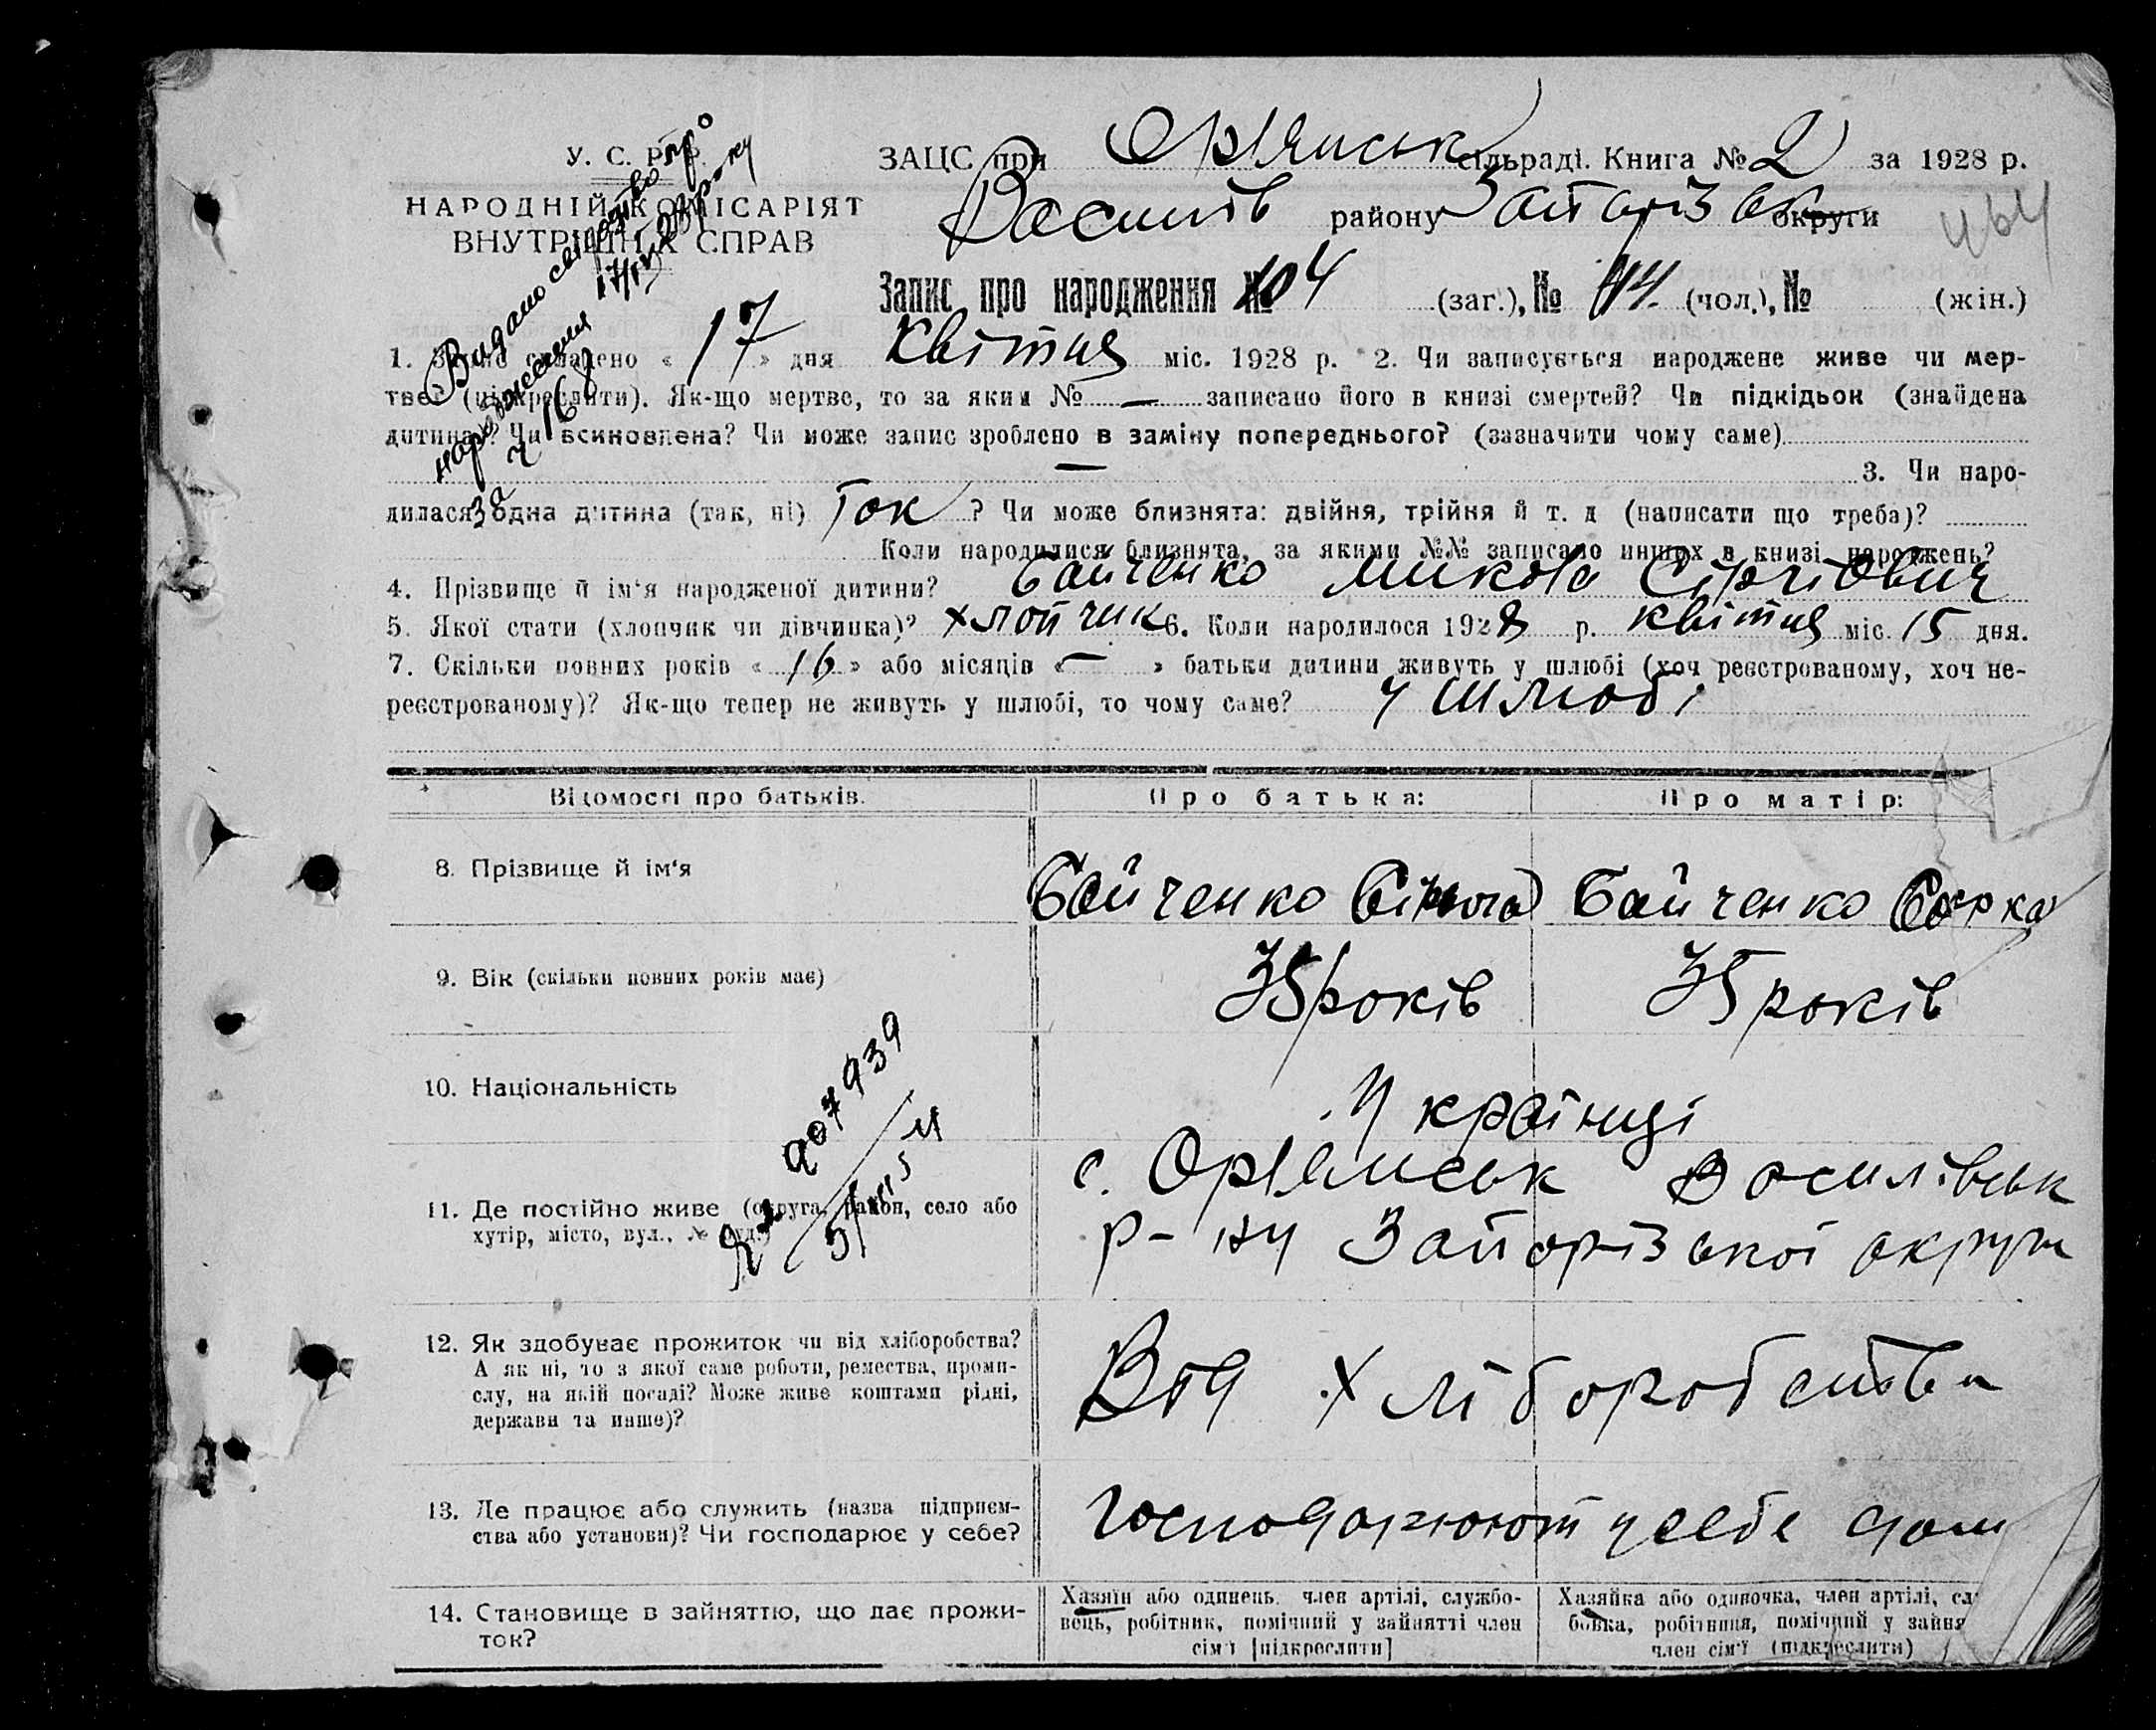 У. С. Р. Р.
НАРОДНІЙ КОМІСАРІЯТ
ВНУТРІШНІХ СПРАВ
ЗАЦС при Орʼянськ сільраді. Книга № 2 за 1928 р.
Василів району Запоріз округи
464
Запис про народження № 104 (заг.), № 44 (чол.), № (жін.)
Видано свідоцтво про
народження
1. Запис складено « 17 » дня Квітня міс. 1928 р. 2. Чи записується народжене живе чи мер-
тве (підкреслити). Як-що мертве, то за яким № — записано його в книзі смертей? Чи підкідьок (знайдена
дитина)? Чи всиновлена? Чи може запис зроблено в заміну попереднього? (зазначити чому саме)
— 3. Чи наро-
дилася одна дитина (так, ні) Так ? Чи може близнята: двійня, трійня й т. д (написати що треба)?
Коли народилися близнята, за якими №№ записано инших в книзі народжень?
4. Прізвище й ім'я народженої дитини? Байченко Микола Сіргіович
5. Якої стати (хлопчик чи дівчинка)? хлопчик 6. Коли народилося 1928 р. квітня міс. 15 дня.
7. Скільки повних років « 16 » або місяців « — » батьки дитини живуть у шлюбі (хоч реєстрованому, хоч не-
реєстрованому)? Як-що тепер не живуть у шлюбі, то чому саме? у шлюбі
Відомості про батьків. Про батька: Про матір:
8. Прізвище й ім'я Байченко Байченко
9. Вік (скільки повних років має) 35 років 35 років
10. Національність Українці
11. Де постійно живе (округа, район, село або
хутір, місто, вул., № буд.)
с. Орʼянськ Василівськ
р-ну Запорізької округи
907939
12. Як здобуває прожиток чи від хліборобства?
А як ні, то з якої саме роботи, ремества, проми-
слу, на якій посаді? Може живе коштами рідні,
держави та инше)?
Від хліборобства
13. Де працює або служить (назва підприєм-
ства або установи)? Чи господарює у себе?
Господарюют у себе дома
14. Становище в зайняттю, що дає прожи-
ток?
Хазяїн або одинець, член артілі, службо-
вець, робітник, помічний у зайнятті член
сім'ї [підкреслити]
Хазяйка або одиночка, член артілі, сл
бовка, робітниця, помічний у зайня
член сім'ї (підкреслити)